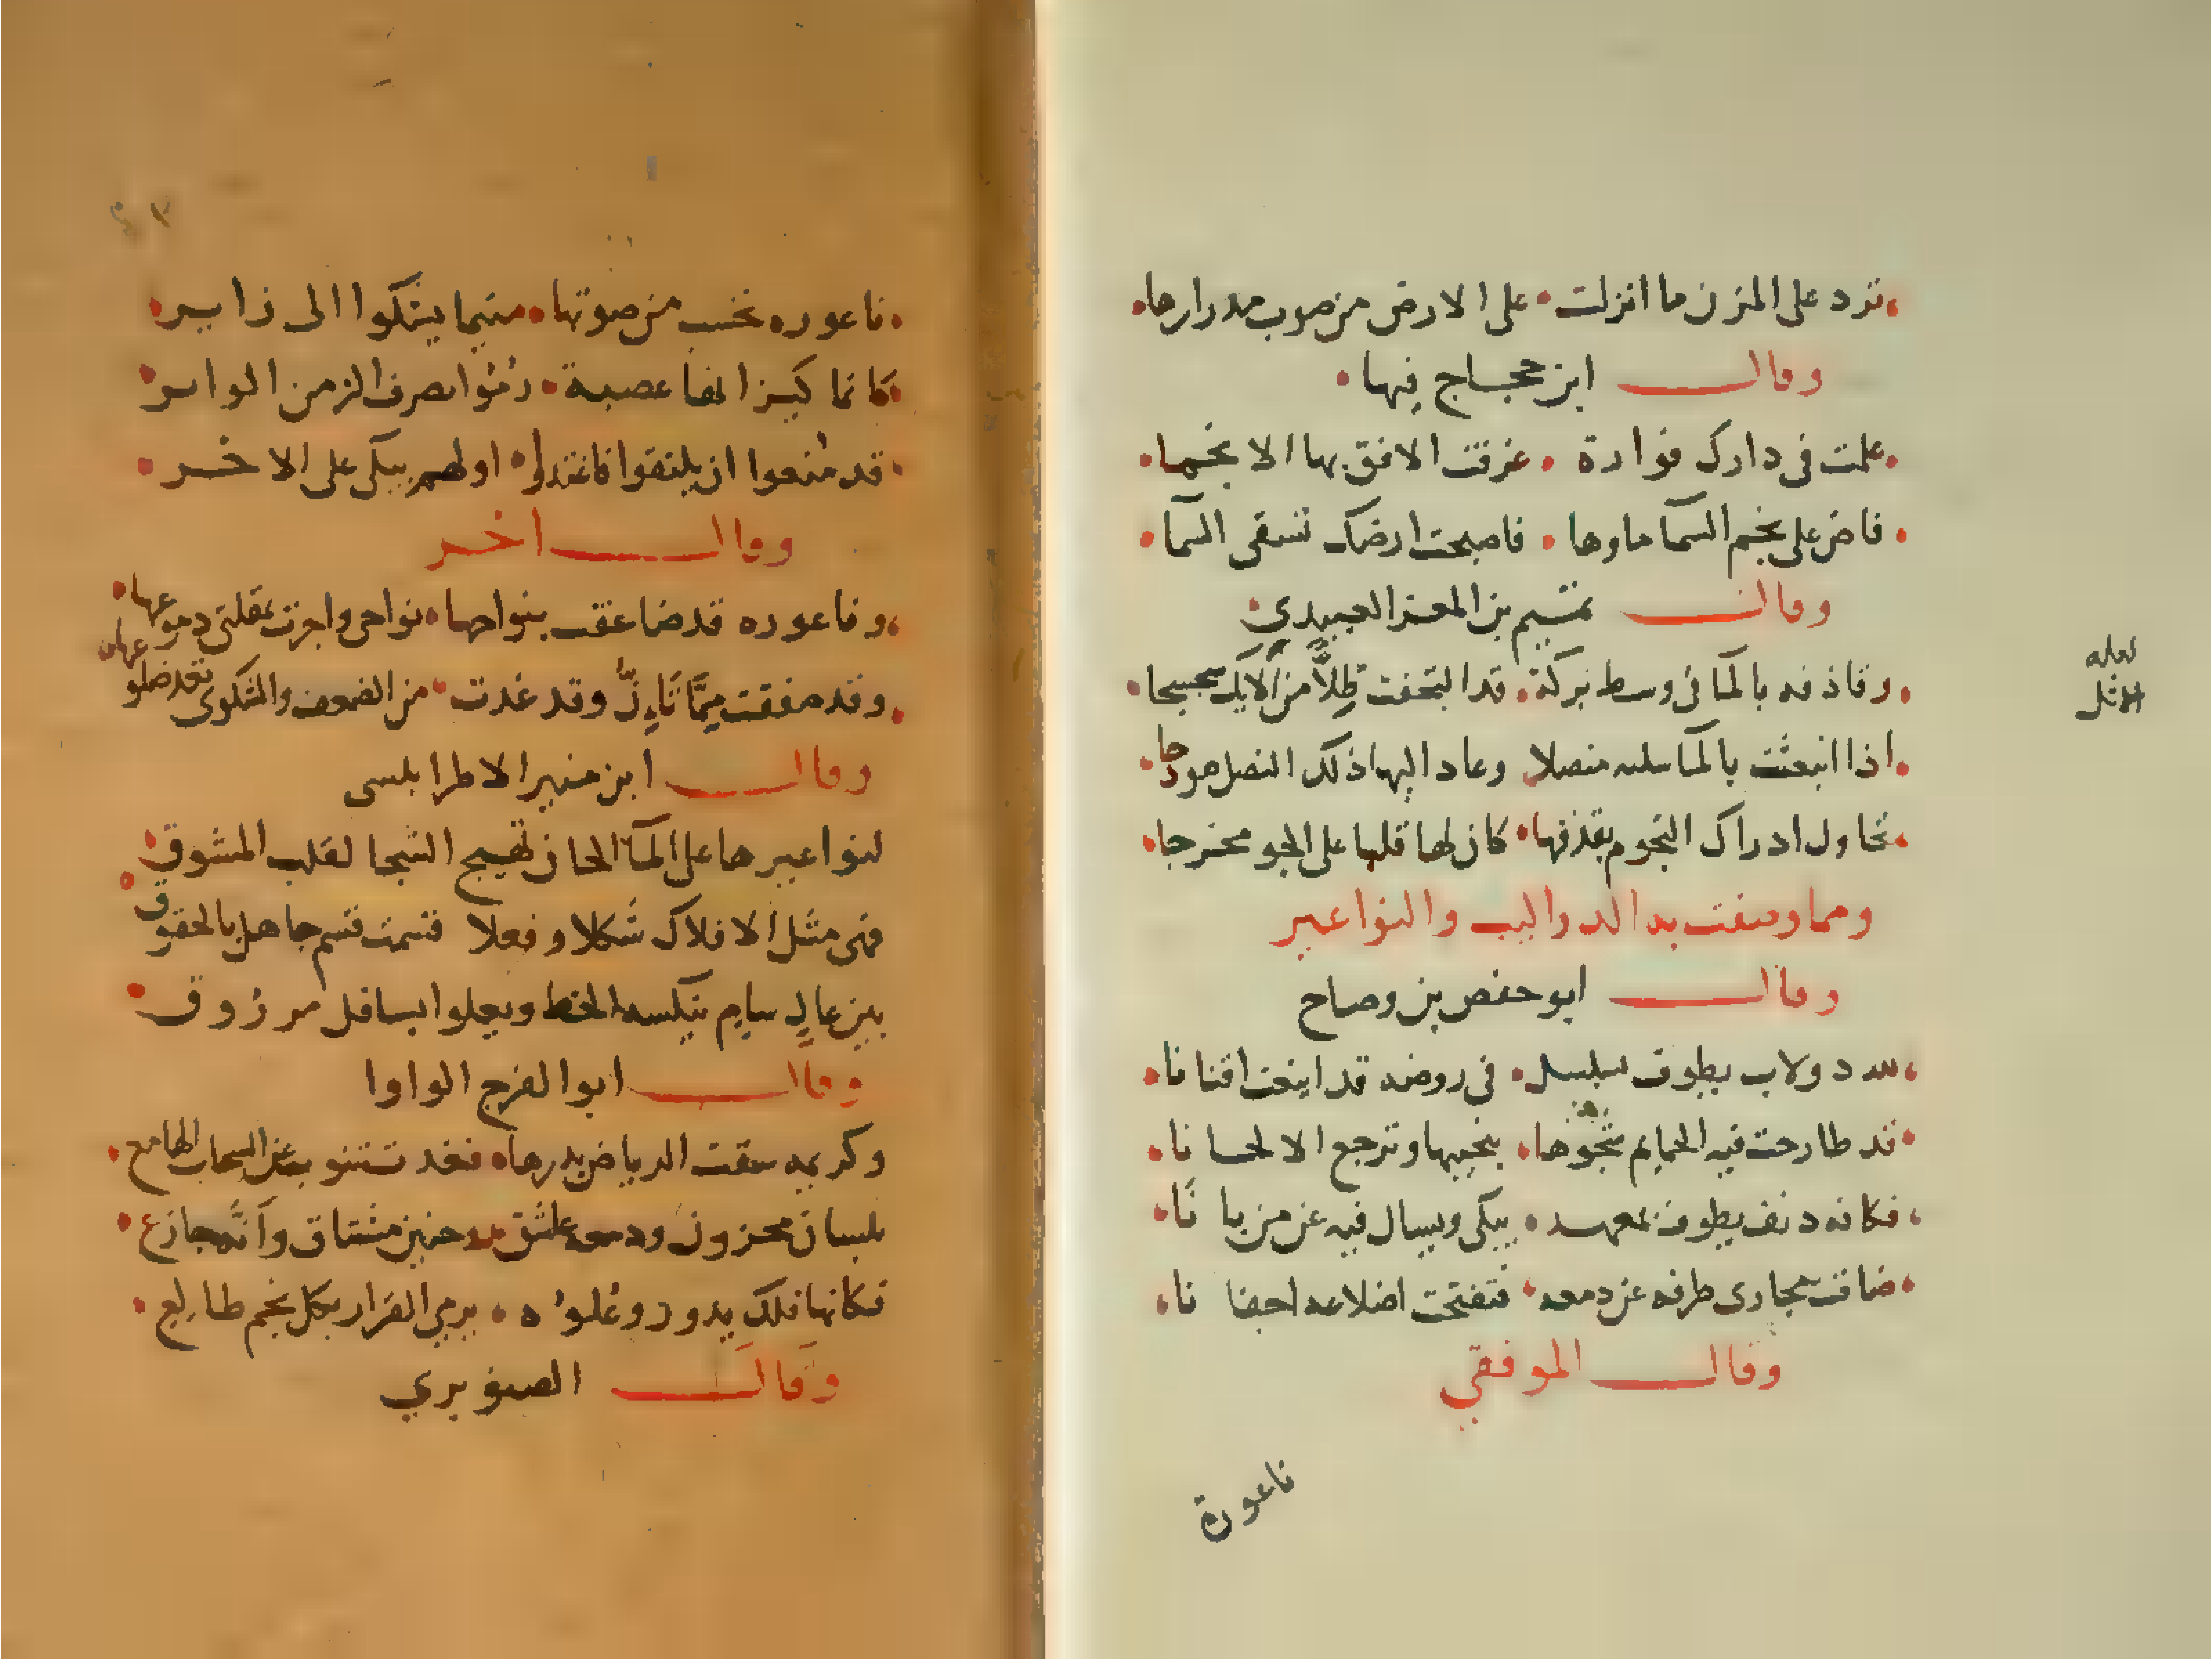 ترد على المزن ما انزلت على الارض من صوب مدرارها
وقال ابن حجاج فيها
علمت في دارك فوارة غرقت الافق بها الانجما
فاض على نجم السما ماوها فاصبحت ارضك تسقى السما
وقال تميم بن المعز العبيدي
وقاذفه بالما في وسط بركة قد التحفت ظلا من الايك سجسجا
لعله
الاثل
اذا انبعثت بالما سلته منصلا وعاد اليها ذلك النصل صودجا
تحاول ادراك النجوم بقذفها كان لها قلبا على الجو محرجا
ومما وصفت به الدواليب والنواعير
وقال ابو حفص بن وضاح
لله دولاب يطوف سلسل في روضه قد اينعت افنانا
قد طارحت فيه الحمايم شجوها بنحيبها وترجع الالحانا
فكانه دنف يطوف بمعهد يبكي ويسال فيه عن من بانا
ضاقت مجاري طرفه عن دمعه فتفتحت اضلاعه اجفانا
وقال الموفقي
ناعورة
ناعوره تحسب من صوتها متيما يشكوا الى زاير
كانما كيزانها عصبة رموا بصرف الزمن الواتر
قد منعوا ان يلتقوا فاغتدوا اولهم يبكي على الاخر
وقال اخر
وناعوره قد ضاعفت بنواحها نواحي واجرت مقلتي دموعها
وقد ضعفت مما تان وقد غدت من الضعف والشكوى تعد ضلوعها
وقال ابن منير الاطرابلسي
لنواعيرها على الما الحان تهيج الشجا لقلب المشوق
فهي مثل الافلاك شكلا وفعلا قسمت قسم جاهل بالحقوق
بين عال سام ينكسه الحظ ويعلوا بسافل مرزوق
وقال ابو الفرج الواوا
وكريمه سقت الرياض بدرها فغدت تنوب عن السحاب الهامع
بلسان محزون ودمعة عاشق وحنين مشتاق وانة جازع
فكانها فلك يدور وعلوه يرمي القرار بكل نجم طالع
وقال الصنوبري